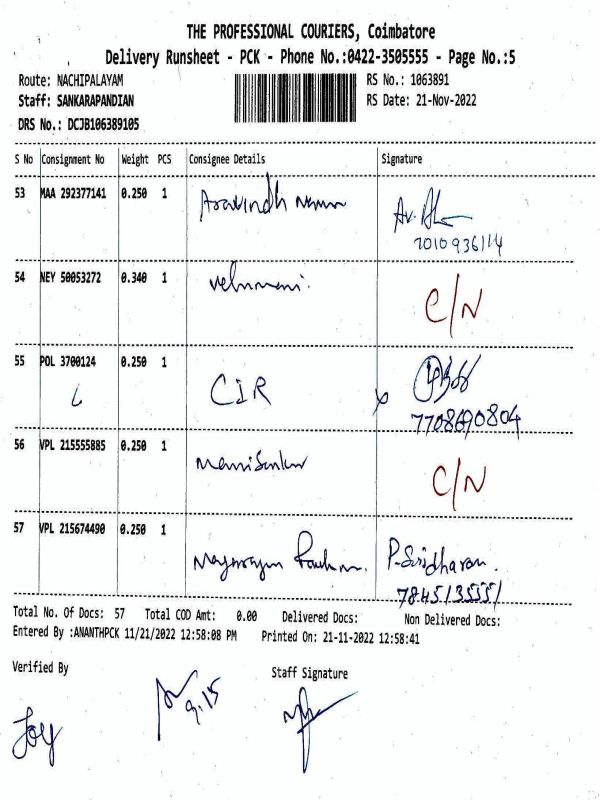 THE PROFESSIONAL COURIERS, Coimbatore
Delivery Runsheet - PCK - Phone No.:0422-3505555 - Page No.:5
Route: NACHIPALAYAM
RS No.: 1063891
Staff: SANKARAPANDIAN
RS Date: 21-Nov-2022
DRS No.: DCJB106389105
S No Consignment No Weight PCS Consignee Details Signature
53 MAA 292377141 0.250 1 Aravindh
7010936114
54 NEY 50053272 0.340 1 velumani.
C/N
55 POL 3700124 0.250 1 CIR
7708690804
56 VPL 215555885 0.250 1
C/N
57 VPL 215674490 0.250 1 P. Sridharan.
7845135551
Total No. Of Docs: 57 Total COD Amt: 0.00 Delivered Docs: Non Delivered Docs:
Entered By :ANANTHPCK 11/21/2022 12:58:08 PM Printed On: 21-11-2022 12:58:41
Verified By Staff Signature
9.15
Joy